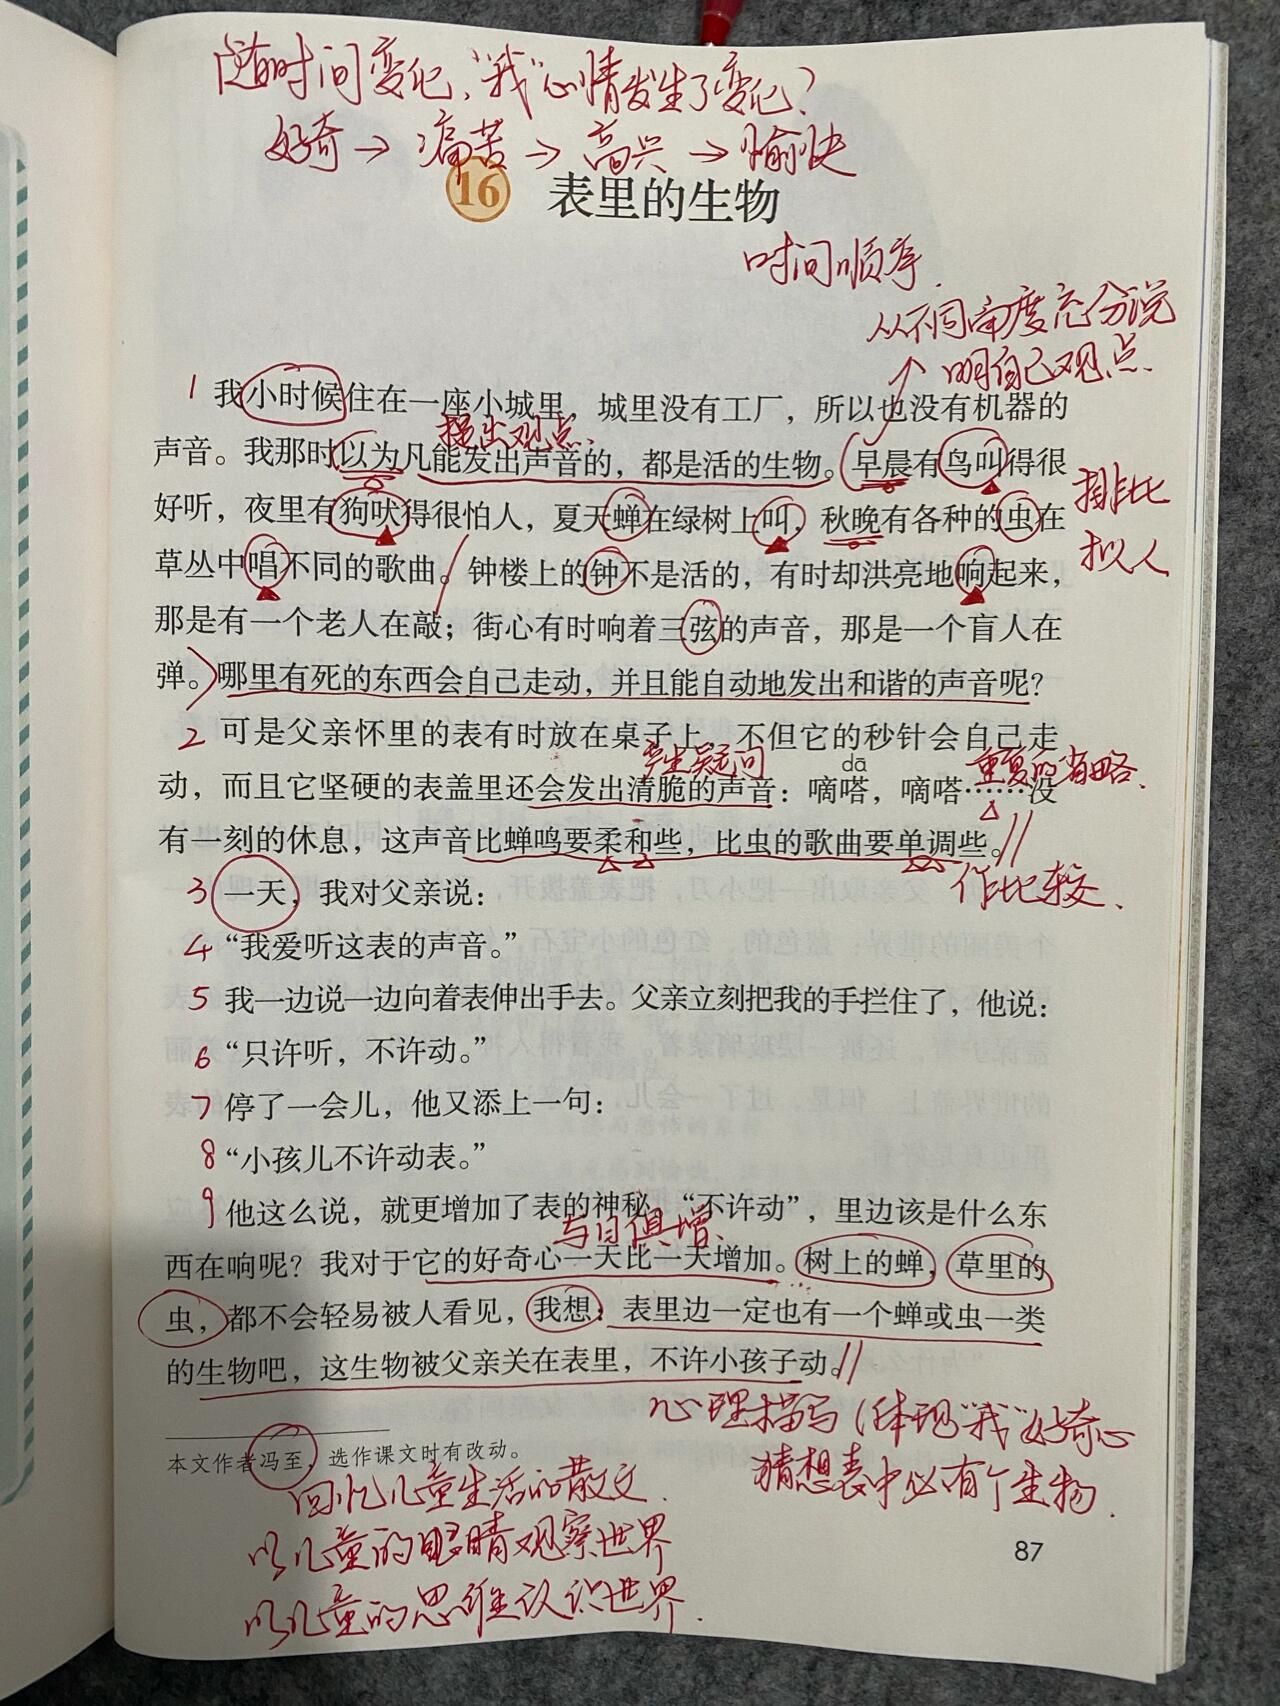 随时间变化，“我”心情发生了变化？
好奇→痛苦→高兴→愉快
16 表里的生物
时间顺序
从不同角度充分说
明自己观点
1 我小时候住在一座小城里，城里没有工厂，所以也没有机器的
提出观点
声音。我那时以为凡能发出声音的，都是活的生物。早晨有鸟叫得很
排比
好听，夜里有狗吠得很怕人，夏天蝉在绿树上叫，秋晚有各种的虫在
拟人
草丛中唱不同的歌曲。钟楼上的钟不是活的，有时却洪亮地响起来，
那是有一个老人在敲；街心有时响着三弦的声音，那是一个盲人在
弹。哪里有死的东西会自己走动，并且能自动地发出和谐的声音呢？
2 可是父亲怀里的表有时放在桌子上，不但它的秒针会自己走
产生疑问
dā
重复的省略
动，而且它坚硬的表盖里还会发出清脆的声音：嘀嗒，嘀嗒……没
有一刻的休息，这声音比蝉鸣要柔和些，比虫的歌曲要单调些。
作比较
3 一天，我对父亲说：
4 “我爱听这表的声音。”
5 我一边说一边向着表伸出手去。父亲立刻把我的手拦住了，他说：
6 “只许听，不许动。”
7 停了一会儿，他又添上一句：
8 “小孩儿不许动表。”
9 他这么说，就更增加了表的神秘。“不许动”，里边该是什么东
与日俱增
西在响呢？我对于它的好奇心一天比一天增加。树上的蝉，草里的
虫，都不会轻易被人看见，我想：表里边一定也有一个蝉或虫一类
的生物吧，这生物被父亲关在表里，不许小孩子动。
心理描写（体现“我”好奇心
猜想表中必有个生物
本文作者冯至，选作课文时有改动。
回忆儿童生活的散文
以儿童的眼睛观察世界
以儿童的思维认识世界
87